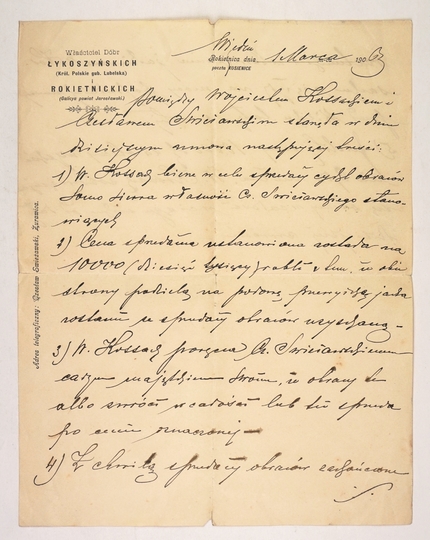 Właściciel Dóbr
ŁYKOSZYŃSKICH
(Król. Polskie gub. Lubelska)
i
ROKIETNICKICH
(Galicya powiat Jarosławski.)
Wiedeń
Rokietnica dnia 1 Marca 190
poczta ROŚENICE
Adres telegraficzny: Czesław Świeżawski, Żurawica.
Pomiędzy Wojciechem Kossakiem i
Czesławem Świeżawskim stanęła w dniu
dzisiejszym umowa następującej treści:
1) W. Kossak bierze w celu sprzedaży cykl obrazów
własność Cz. Świeżawskiego stano-
wiących
2) Cena sprzedażna ustanowiona została na
10000 (dziesięć tysięcy) rubli z tem, że obie
strony podzielą na połowę przewyżkę jaka
zostanie ze sprzedaży obrazów uzyskaną -
3) W. Kossak poręcza Cz. Świeżawskiemu
całym majątkiem swoim, że obrazy te
albo zwróci w całości lub też sprzeda
po cenie oznaczonej -
4) Z chwilą sprzedaży obrazów